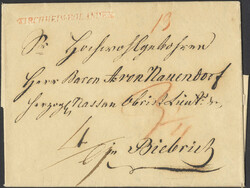 KIRCHHEIMBOLANDEN
13
Sr Hochwohlgebohren
Herrn Baron von Nauendorf
Herzogl Nassau Obrist Lieut:
4
in Biebrich